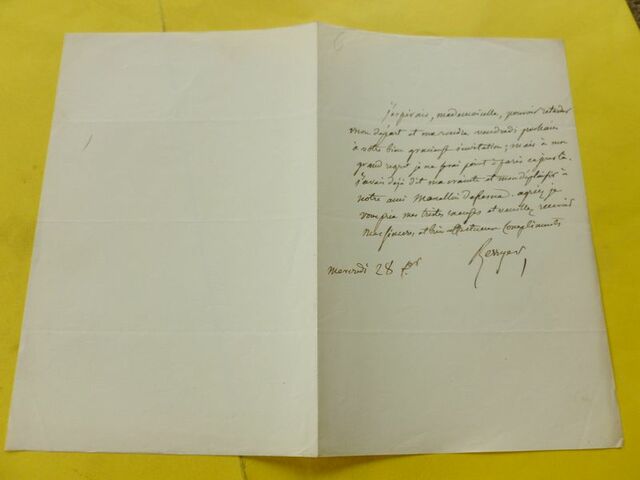 j'espérais, mademoiselle, pouvoir retarder
mon départ et me rendre vendredi prochain
à votre bien gracieuse invitation; mais à mon
grand regret je ne serai point à Paris ce
j'avais déjà dit ma crainte et mon déplaisir à
notre ami Marcellin agréez je
vous prie mes tristes excuses et veuillez recevoir
mes sinceres et bien affectueux Compliments
Berryer
mercredi 28